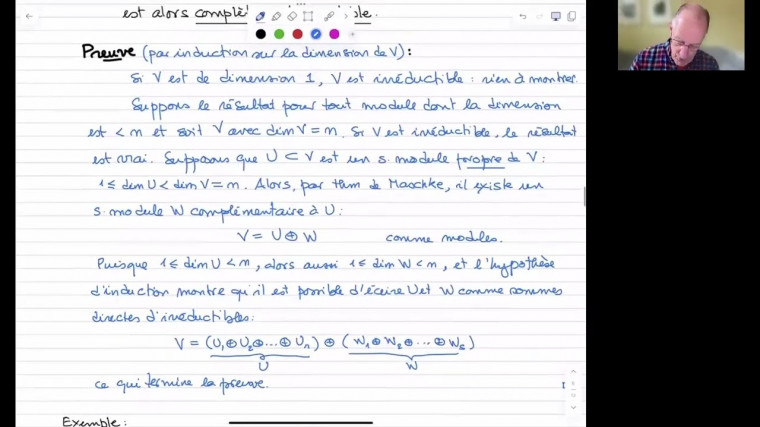 est alors complè
Preuve (par induction sur la dimension de V) :
Si V est de dimension 1, V est irréductible : rien à montrer.
Supposons le résultat pour tout module dont la dimension
est < n et soit V avec dim V = n. Si V est irréductible, le résultat
est vrai. Supposons que U ⊂ V est un s. module propre de V :
1 ≤ dim U < dim V = n. Alors, par thm de Maschke, il existe un
s. module W complémentaire à U :
V = U ⊕ W comme modules.
Puisque 1 ≤ dim U < n, alors aussi 1 ≤ dim W < n, et l'hypothèse
d'induction montre qu'il est possible d'écrire U et W comme sommes
directes d'irréductibles :
V = (U₁ ⊕ U₂ ⊕ ... ⊕ Uᵣ) ⊕ (W₁ ⊕ W₂ ⊕ ... ⊕ Wₛ)
U W
ce qui termine la preuve.
Exemple :